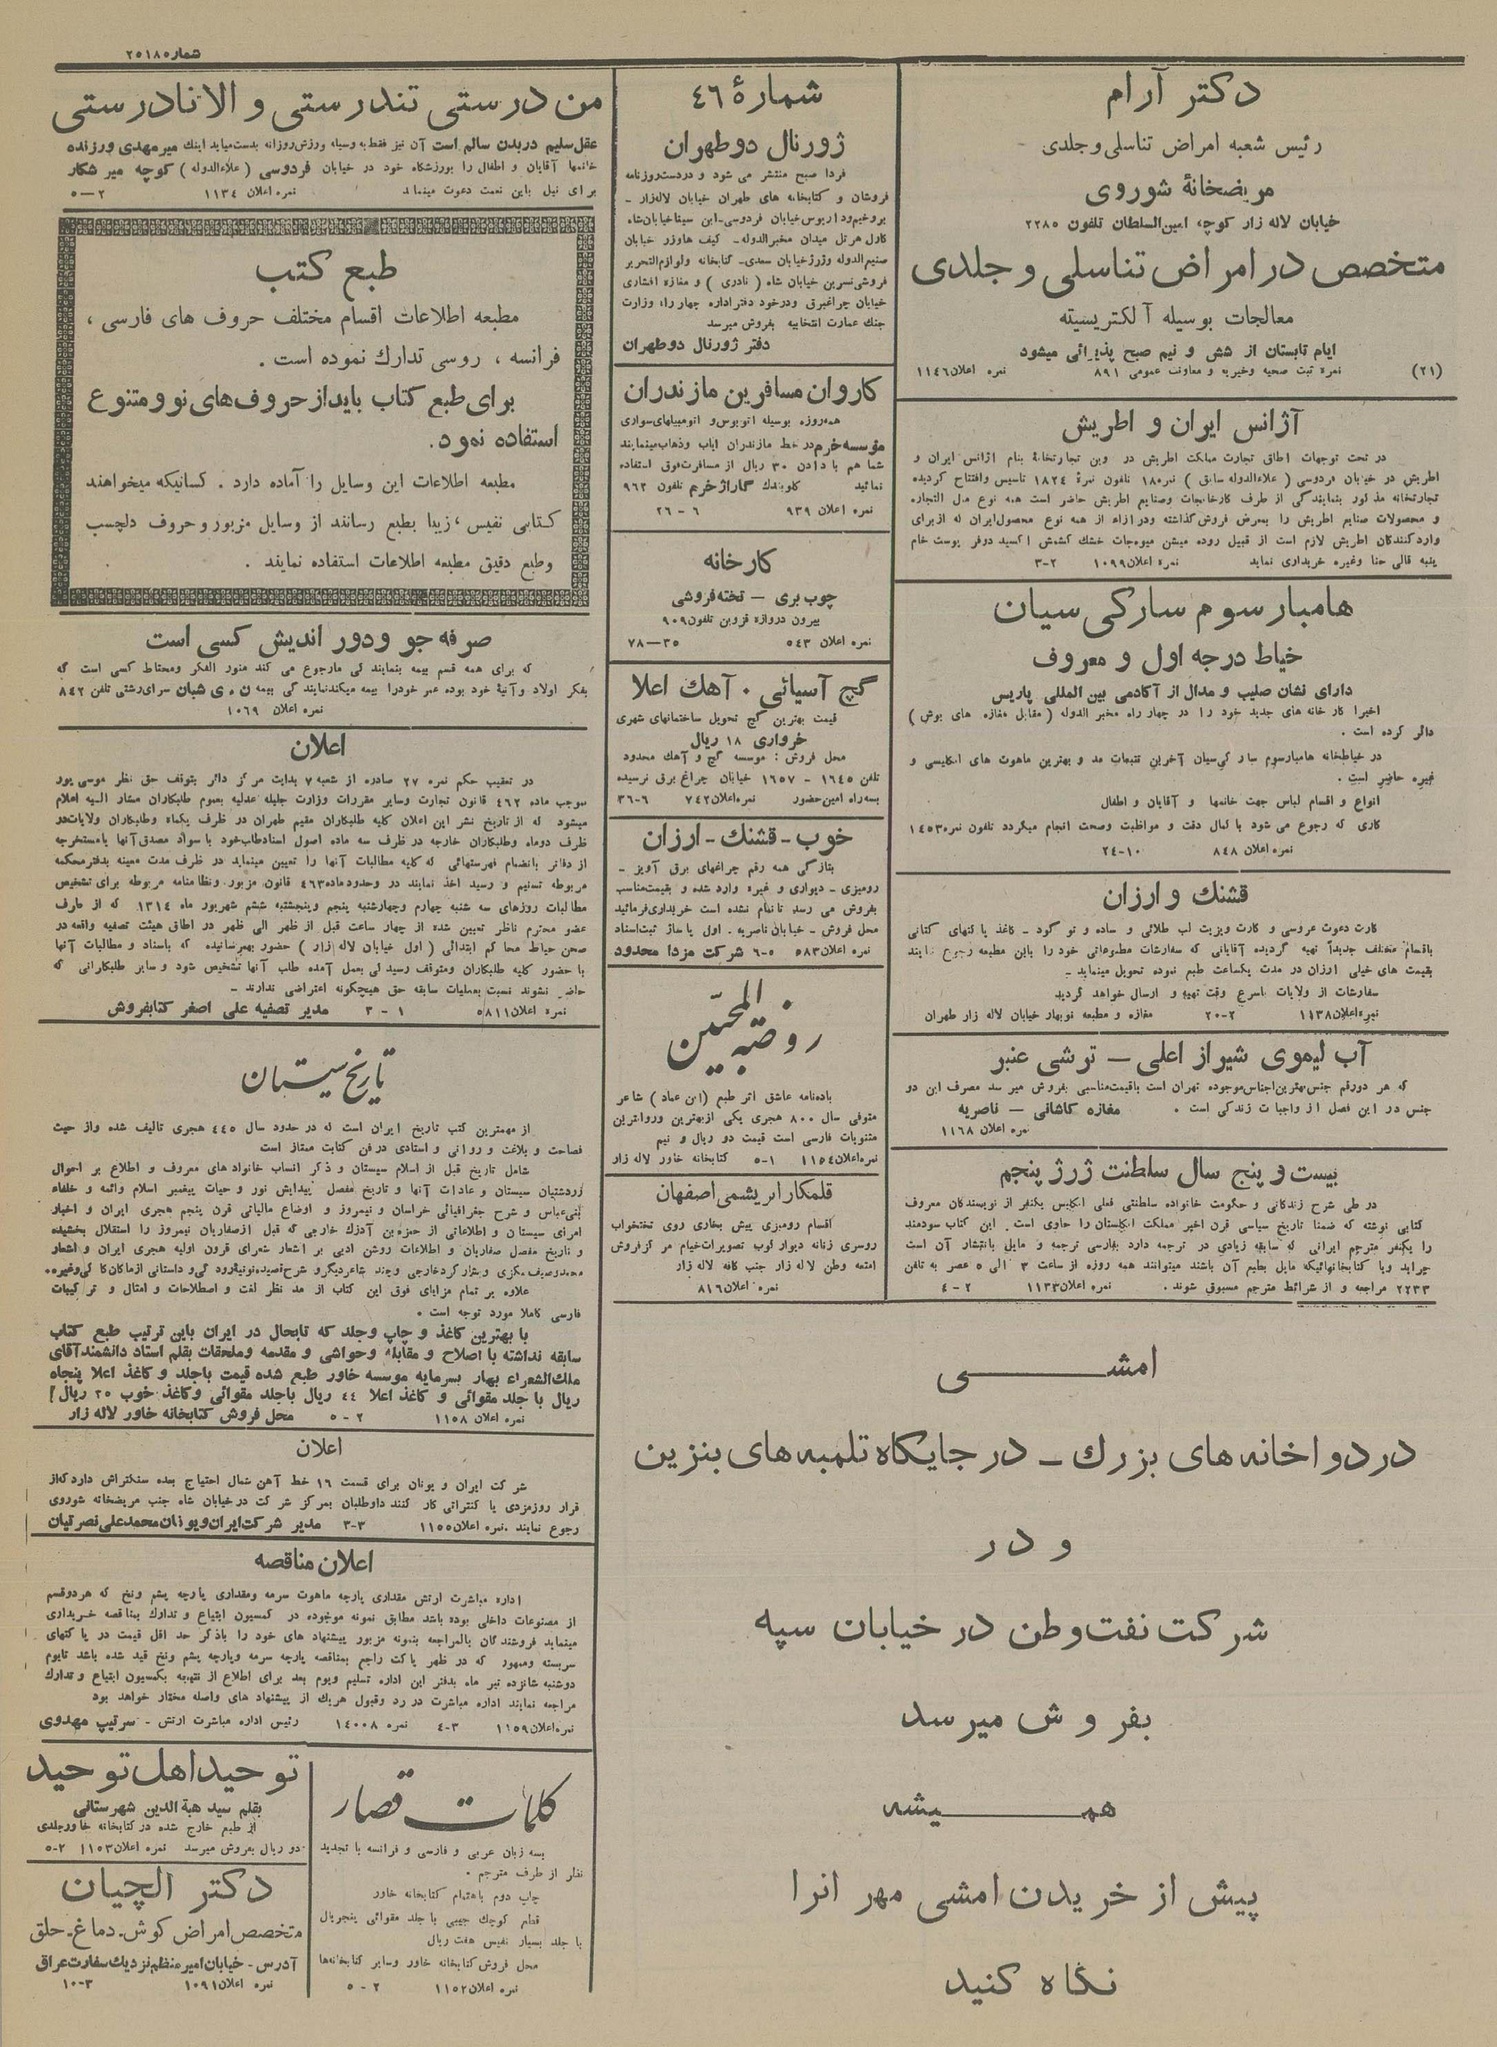 شماره ۲۵۱۸
دکتر آرام
رئیس شعبه امراض تناسلی و جلدی
مریضخانهٔ شوروی
خیابان لاله زار کوچه امین‌السلطان تلفون ۲۲۸۵
متخصص در امراض تناسلی و جلدی
معالجات بوسیله آلکتریسیته
ایام تابستان از شش و نیم صبح پذیرائی میشود
(۲۱) نمره ثبت صحیه و خیریه و معاون عمومی ۸۹۱ نمره اعلان ۱۱۴۶
آژانس ایران و اطریش
در تحت توجهات اطاق تجارت مملکت اطریش در وین تجارتخانهٔ بنام آژانس ایران و
اطریش در خیابان فردوسی (علاءالدوله سابق) نمره ۱۸۰ تلفون نمرهٔ ۱۸۲۴ تاسیس وافتتاح گردیده
تجارتخانه مذکور بنمایندگی از طرف کارخانجات وصنایع اطریش حاضر است همه نوع مال التجاره
و محصولات صنایع اطریش را بمعرض فروش گذاشته ودرازاء از همه نوع محصول ایران که از برای
واردکنندگان اطریش لازم است از قبیل روده میشن میوه‌جات خشک کشمش اکسید دوفر پوست خام
پنبه قالی حنا وغیره خریداری نماید نمره اعلان ۱۰۹۹ ۲-۳
هامبارسوم سارکی سیان
خیاط درجه اول و معروف
دارای نشان صلیب و مدال از آکادمی بین المللی پاریس
اخیرا کار خانه های جدید خود را در چهار راه مخبر الدوله (مقابل مغازه های بوش)
دائر کرده است .
در خیاطخانه هامبارسوم سارکی‌سیان آخرین تتبعات مد و بهترین ماهوت های انگلیسی و
غیره حاضر است .
انواع و اقسام لباس جهت خانمها و آقایان و اطفال
کاری که رجوع می شود با کمال دقت و مواظبت وصحت انجام میگردد تلفون نمره ۱۴۵۳
نمره اعلان ۸۴۸ ۱۰-۲۴
قشنگ و ارزان
کارت دعوت عروسی و کارت ویزیت لب طلائی و ساده و نو گود - کاغذ پاکتهای کتانی
باقسام مختلف جدیداً تهیه گردیده آقایانی که سفارشات مطبوعاتی خود را باین مطبعه رجوع نمایند
بقیمت های خیلی ارزان در مدت یکساعت طبع نموده تحویل مینماید -
سفارشات از ولایات باسرع وقت تهیه و ارسال خواهد گردید
نمره اعلان ۱۱۳۸ ۲-۲۰ مغازه و مطبعه نوبهار خیابان لاله زار طهران
آب لیموی شیراز اعلی — ترشی عنبر
که هر دو رقم جنس بهترین اجناس موجوده تهران است باقیمت مناسبی بفروش میرسد مصرف این دو
جنس در این فصل از واجبات زندگی است . مغازه کاشانی — ناصریه
نمره اعلان ۱۱۶۸
بیست و پنج سال سلطنت ژرژ پنجم
در طی شرح زندگانی و حکومت خانواده سلطنتی فعلی انگلیس یکنفر از نویسندگان معروف
کتابی نوشته که ضمنا تاریخ سیاسی قرن اخیر مملکت انگلستان را حاوی است. این کتاب سودمند
را یکنفر مترجم ایرانی که سابقه زیادی در ترجمه دارد بفارسی ترجمه و مایل بانتشار آن است
جراید ویا کتابخانهائیکه مایل بطبع آن باشند میتوانند همه روزه از ساعت ۳ الی ۵ عصر به تلفن
۲۲۳۳ مراجعه و از شرائط مترجم مسبوق شوند. نمره اعلان ۱۱۳۳ ۲-۴
شمارهٔ ۴۶
ژورنال دو طهران
فردا صبح منتشر می شود و در دست روزنامه
فروشان و کتابخانه های طهران خیابان لاله‌زار -
بروخیم و داریوس خیابان فردوسی - ابن سینا خیابان شاه
کارل هرتل میدان مخبرالدوله - کیف هاوزر خیابان
صنیع الدوله وژرژ خیابان سعدی - کتابخانه ولوازم التحریر
فروشی نسرین خیابان شاه (نادری) و مغازه افشاری
خیابان چراغبرق ودرخود دفتر اداره چهار راه وزارت
جنگ عمارت انتخابیه بفروش میرسد
دفتر ژورنال دو طهران
کاروان مسافرین مازندران
همه‌روزه بوسیله اتوبوس و اتومبیلهای سواری
مؤسسه خرم در خط مازندران ایاب وذهاب مینمایند
شما هم با دادن ۳۰ ریال از مسافرت فوق استفاده
نمائید کلوبندک گاراژ خرم تلفون ۹۶۲
نمره اعلان ۹۳۹ ۶ - ۲۶
کارخانه
چوب بری — تخته فروشی
بیرون دروازه قزوین تلفون ۹۰۹
نمره اعلان ۵۴۳ ۳۵—۷۸
گچ آسیائی . آهک اعلا
قیمت بهترین گچ تحویل ساختمانهای شهری
خرواری ۱۸ ریال
محل فروش : موسسه گچ و آهک محدود
تلفن ۱۶۴۵ - ۱۶۵۷ خیابان چراغ برق نرسیده
بسه راه امین حضور نمره اعلان ۷۴۲ ۶-۳۶
خوب - قشنگ - ارزان
بتازگی همه رقم چراغهای برق آویز -
رومیزی - دیواری و غیره وارد شده و بقیمت مناسب
بفروش می رسد تا تمام نشده است خریداری فرمائید
محل فروش - خیابان ناصریه . اول پاساژ ثبت اسناد
نمره اعلان ۵۸۳ ۵-۶ شرکت مزدا محدود
روضة المحبّین
یا ده‌نامه عاشق اثر طبع (ابن عماد) شاعر
متوفی سال ۸۰۰ هجری یکی از بهترین وروانترین
مثنویات فارسی است قیمت دو ریال و نیم
نمره اعلان ۱۱۵۴ ۱-۵ کتابخانه خاور لاله زار
قلمکار ابریشمی اصفهان
اقسام رومیزی پیش بخاری روی تختخواب
روسری زنانه دیوارکوب تصویرات خیام مرکز فروش
امتعه وطن لاله زار جنب کافه لاله زار
نمره اعلان ۸۱۶
من درستی تندرستی و الانادرستی
عقل سلیم در بدن سالم است آن نیز فقط به وسیله ورزش روزانه بدست میاید اینک میر مهدی ورزنده
خانمها آقایان و اطفال را بورزشگاه خود در خیابان فردوسی (علاءالدوله) کوچه میر شکار
برای نیل باین نعمت دعوت مینماید نمره اعلان ۱۱۳۴ ۲—۵
طبع کتب
مطبعه اطلاعات اقسام مختلف حروف های فارسی ،
فرانسه ، روسی تدارک نموده است .
برای طبع کتاب باید از حروف‌های نو و متنوع
استفاده نمود.
مطبعه اطلاعات این وسایل را آماده دارد . کسانیکه میخواهند
کتابی نفیس ، زیبا بطبع رسانند از وسایل مزبور و حروف دلچسب
وطبع دقیق مطبعه اطلاعات استفاده نمایند .
صرفه جو و دور اندیش کسی است
که برای همه قسم بیمه بنمایندگی ما رجوع می کند منور الفکر ومحتاط کسی است که
بفکر اولاد وآتیهٔ خود بوده عمر خود را بیمه میکند نمایندگی بیمه ن . ی شبان سرای رشتی تلفن ۸۴۲
نمره اعلان ۱۰۶۹
اعلان
در تعقیب حکم نمره ۲۷ صادره از شعبه ۷ بدایت مرکز دائر بتوقف حق نظر موسی پور
بموجب ماده ۴۶۲ قانون تجارت وسایر مقررات وزارت جلیله عدلیه بعموم طلبکاران مشار الیه اعلام
میشود که از تاریخ نشر این اعلان کلیه طلبکاران مقیم طهران در ظرف یکماه وطلبکاران ولایات در
ظرف دوماه وطلبکاران خارجه در ظرف سه ماده اصول اسناد طلب خود با سواد مصدق آنها یا مستخرجه
از دفاتر بانضمام فهرستهائی که کلیه مطالبات آنها را تعیین مینماید در ظرف مدت معینه بدفتر محکمه
مربوطه تسلیم و رسید اخذ نمایند در وحدود ماده ۴۶۳ قانون مزبور ونظامنامه مربوطه برای تشخیص
مطالبات روزهای سه شنبه چهارم وچهارشنبه پنجم وپنجشنبه ششم شهریور ماه ۱۳۱۴ که از طرف
عضو محترم ناظر تعیین شده از چهار ساعت قبل از ظهر الی ظهر در اطاق هیئت تصفیه واقعه در
صحن حیاط محاکم ابتدائی (اول خیابان لاله زار) حضور بهم‌رسانیده که باسناد و مطالبات آنها
با حضور کلیه طلبکاران ومتوقف رسیدگی بعمل آمده طلب آنها تشخیص شود و سایر طلبکارانی که
حاضر نشوند نسبت بعملیات سابقه حق هیچگونه اعتراضی ندارند -
نمره اعلان ۵۸۱۱ ۱ - ۳ مدیر تصفیه علی اصغر کتابفروش
تاریخ سیستان
از مهمترین کتب تاریخ ایران است که در حدود سال ۴۴۵ هجری تالیف شده واز حیث
فصاحت و بلاغت و روانی و استادی در فن کتابت ممتاز است
شامل تاریخ قبل از اسلام سیستان و ذکر انساب خانوادهای معروف و اطلاع بر احوال
زردشتیان سیستان و عادات آنها و تاریخ مفصل پیدایش نور و حیات پیغمبر اسلام وائمه و خلفاء
بنی‌عباس و شرح جغرافیائی خراسان و نیمروز و اوضاع مالیاتی قرن پنجم هجری ایران و اخبار
امرای سیستان و اطلاعاتی از حمزه بن آذرک خارجی که قبل از صفاریان نیمروز را استقلال بخشیده
و تاریخ مفصل صفاریان و اطلاعات روشن ادبی بر اشعار شعرای قرون اولیه هجری ایران و اشعار
محمد وصیف سگزی و بسام کرد خارجی وچند شاعر دیگر و شرح قصیده نونیه رودکی و داستانی از ماکان کاکی وغیره
علاوه بر تمام مزایای فوق این کتاب از مد نظر لغت و اصطلاحات و امثال و ترکیبات
فارسی کاملا مورد توجه است .
با بهترین کاغذ و چاپ وجلد که تابحال در ایران باین ترتیب طبع کتاب
سابقه نداشته با اصلاح و مقابله وحواشی و مقدمه وملحقات بقلم استاد دانشمند آقای
ملک‌الشعراء بهار بسرمایه موسسه خاور طبع شده قیمت باجلد و کاغذ اعلا پنجاه
ریال با جلد مقوائی و کاغذ اعلا ۴۴ ریال باجلد مقوائی وکاغذ خوب ۳۵ ریال
نمره اعلان ۱۱۵۸ ۲ - ۵ محل فروش کتابخانه خاور لاله زار
اعلان
شرکت ایران و یونان برای قسمت ۱۶ خط آهن شمال احتیاج بعده سنگتراش دارد که از
قرار روزمزدی یا کنتراتی کار کنند داوطلبان بمرکز شرکت در خیابان شاه جنب مریضخانه شوروی
رجوع نمایند . نمره اعلان ۱۱۵۵ ۳-۳ مدیر شرکت ایران و یونان محمد علی نصرتیان
اعلان مناقصه
اداره مباشرت ارتش مقداری پارچه ماهوت سرمه ومقداری پارچه پشم ونخ که هر دو قسم
از مصنوعات داخلی بوده باشد مطابق نمونه موجوده در کمسیون ابتیاع و تدارک بمناقصه خریداری
مینماید فروشندگان بالمراجعه بنمونه مزبور پیشنهاد های خود را باذکر حد اقل قیمت در پاکتهای
سربسته وممهور که در ظهر پاکت راجع بمناقصه پارچه سرمه وپارچه پشم ونخ قید شده باشد تا یوم
دوشنبه شانزده تیر ماه بدفتر این اداره تسلیم ویوم بعد برای اطلاع از نتیجه بکمسیون ابتیاع و تدارک
مراجعه نمایند اداره مباشرت در رد وقبول هریک از پیشنهاد های واصله مختار خواهد بود
نمره اعلان ۱۱۵۹ ۳-۴ نمره ۱۴۰۰۸ رئیس اداره مباشرت ارتش - سرتیپ مهدوی
کلمات قصار
بسه زبان عربی و فارسی و فرانسه با تجدید
نظر از طرف مترجم .
چاپ دوم باهتمام کتابخانه خاور
قطع کوچک جیبی با جلد مقوائی پنج‌ریال
با جلد بسیار نفیس هفت ریال
محل فروش کتابخانه خاور وسایر کتابخانه‌ها
نمره اعلان ۱۱۵۲ ۲ - ۵
توحید اهل توحید
بقلم سید هبة الدین شهرستانی
از طبع خارج شده در کتابخانه خاور جلدی
دو ریال بفروش میرسد نمره اعلان ۱۱۵۳ ۲-۵
دکتر الچیان
متخصص امراض گوش - دماغ - حلق
آدرس - خیابان امیر منظم نزدیک سفارت عراق
نمره اعلان ۱۰۹۱ ۳-۱۰
امشی
در دواخانه های بزرک - در جایگاه تلمبه های بنزین
و در
شرکت نفت وطن در خیابان سپه
بفروش میرسد
همیشه
پیش از خریدن امشی مهر انرا
نگاه کنید